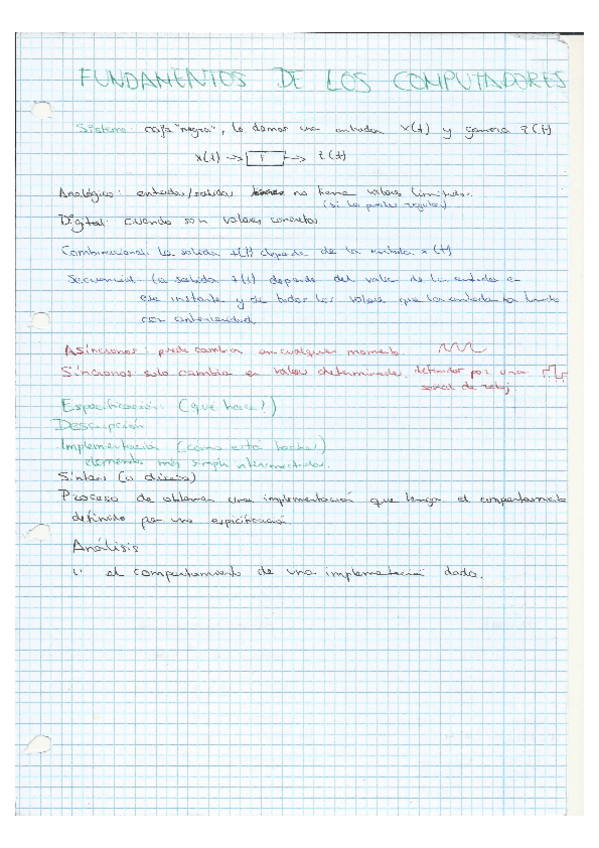 FUNDAMENTOS DE LOS COMPUTADORES
Sistema: caja "negra", le damos una entrada x(t) y genera z(t)
x(t) → → z(t)
Analógico: entrada/salida no tiene valores limitados.
(si los puedes regular)
Digital: cuando son valores concretos
Combinacional: la salida z(t) depende de la entrada x(t)
Secuencial: la salida z(t) depende del valor de la entrada en
ese instante y de todos los valores que la entrada ha tenido
con anterioridad.
Asíncronos: puede cambiar en cualquier momento
Síncronos solo cambia en valores determinados, definidos por una
señal de reloj.
Especificación: (que hace?)
Descripción
Implementación (como está hecho?)
elementos más simples interconectados.
Síntesis (o diseño)
Proceso de obtener una implementación que tenga el comportamiento
definido por una especificación.
Análisis
el comportamiento de una implementación dada.